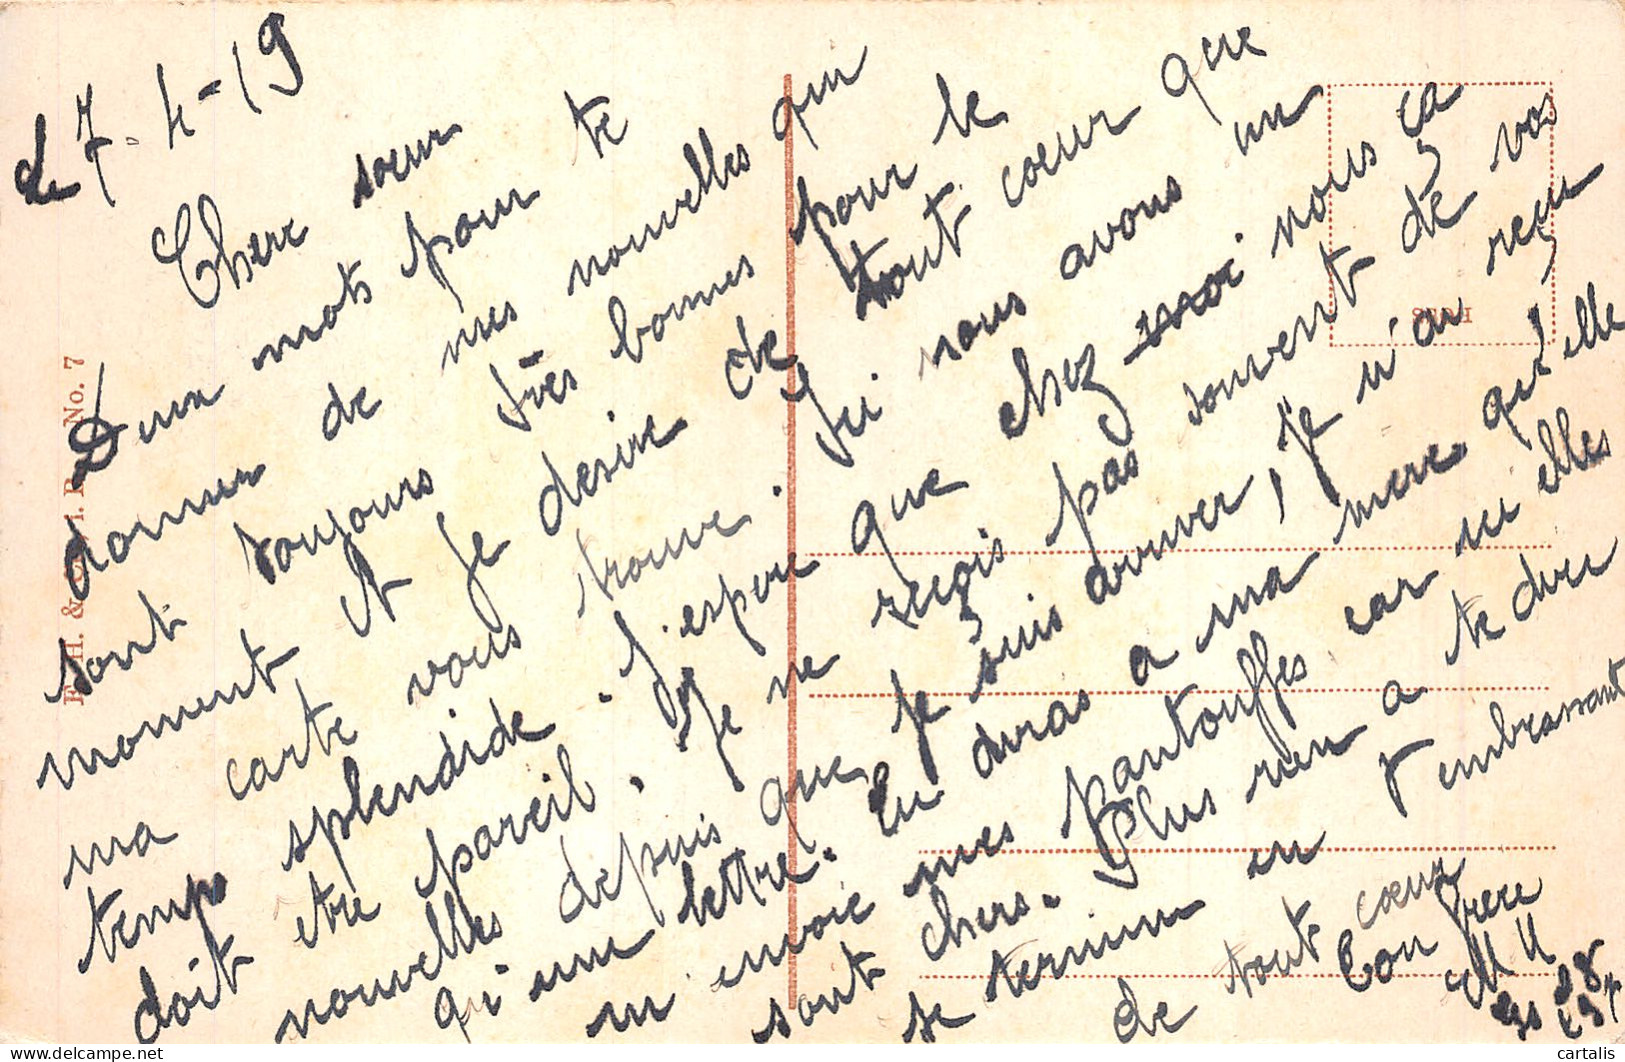 Le 7-4-19
Chere sœur
Deux mots pour te
donner de mes nouvelles qui
sont toujours très bonnes pour le
moment et je desire de tout cœur que
ma carte vous trouve de . Ici nous avons un
temps splendide . J'espère que chez moi nous ça
doit etre pareil . Je ne reçois pas souvent de vos
nouvelles depuis que je suis arriver, je n'ai reçu
qu'une lettre. Tu diras a ma mere qu'elle
m'envoie mes pantouffles car ici elles
sont chers. Plus rien a te dire
je termine en t'embrassant
de tout cœur
Ton frere
F. H. & C. i. B. No. 7
cartalis